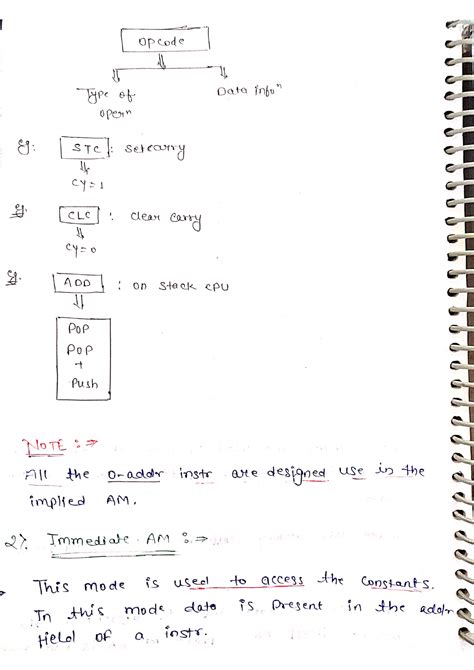 Opcode
Type of Data infoⁿ
operⁿ
Eg: STC : set carry
CY=1
Eg. CLC : clear carry
CY=0
Eg. ADD : on stack CPU
POP
POP
+
Push
NOTE :⇒
All the 0-addr instr are designed use in the
implied AM.
2). Immediate AM :⇒
This mode is used to access the constants.
In this mode data is present in the addr
field of a instr.